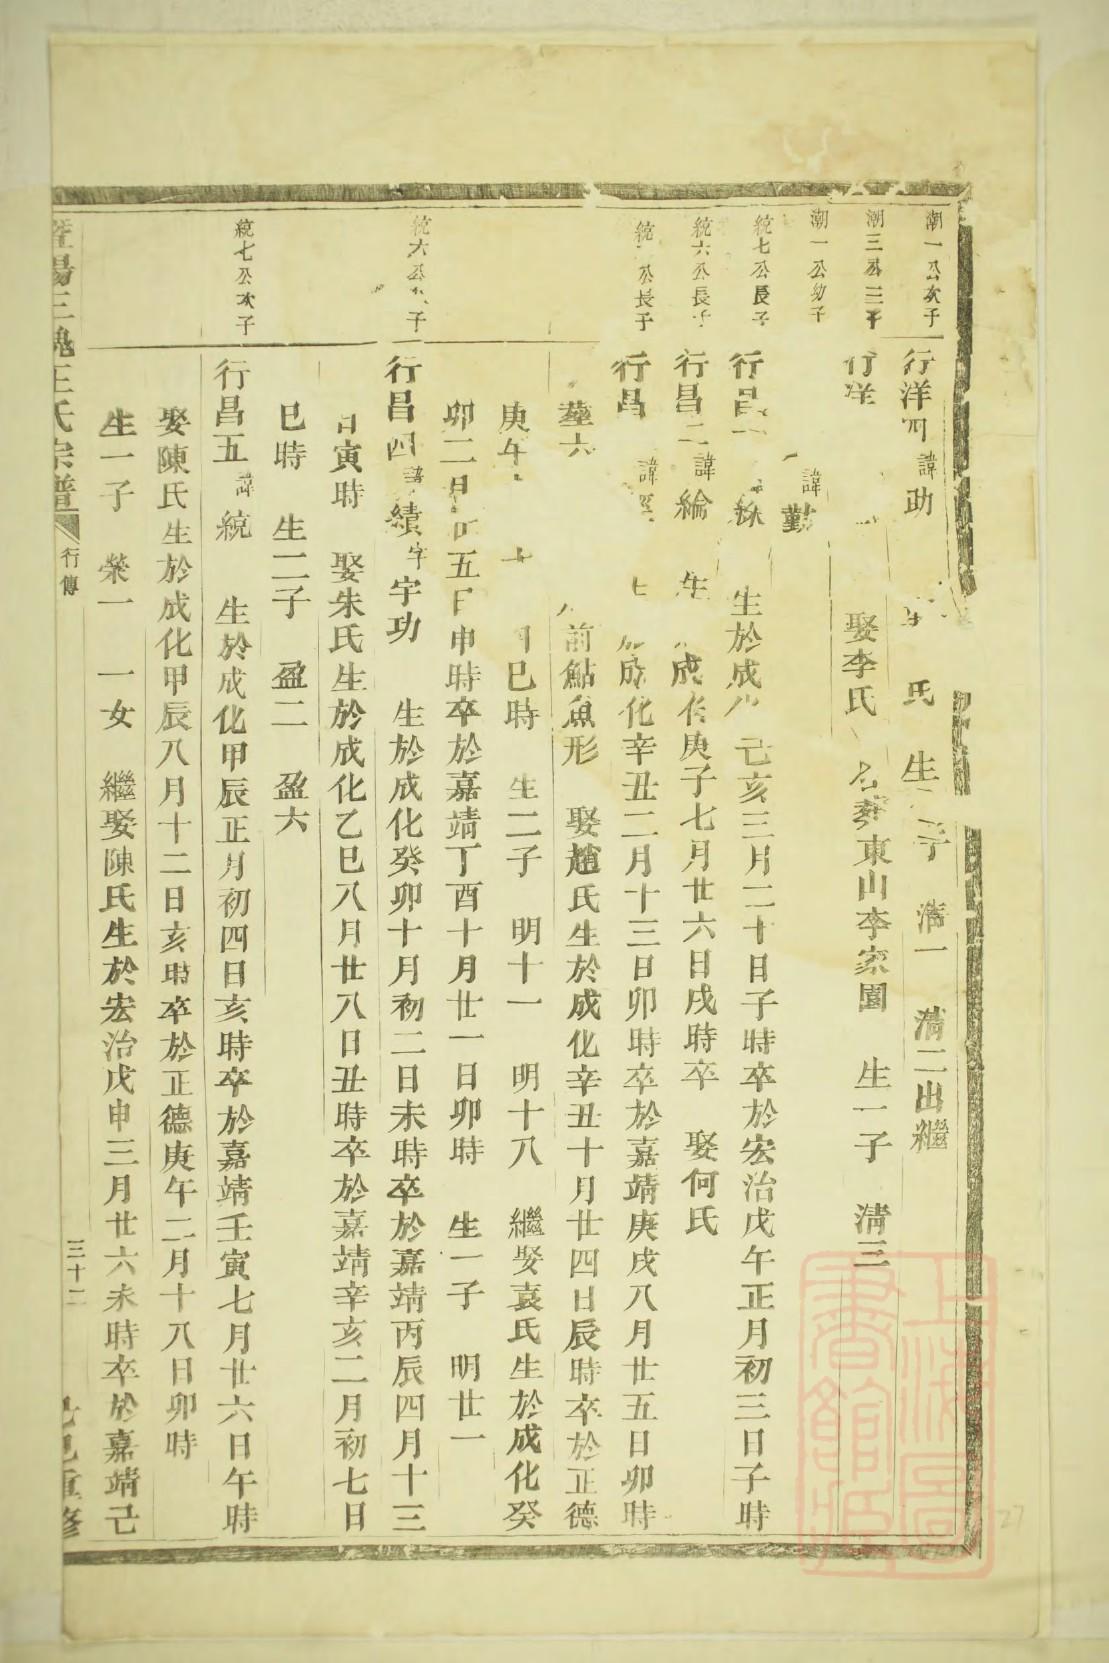 潮一公次子
行洋四 諱助 氏 生 子 淸一 淸二出繼
潮三公三子
行洋 娶李氏 合葬東山李家園 生一子 淸三
潮一公幼子
諱勤
統七公長子
行昌 生於成化己亥三月二十日子時卒於宏治戊午正月初三日子時
統六公長子
行昌二 諱綸 生 成化庚子七月廿六日戌時卒 娶何氏
統 公長子
行昌 諱 成化辛丑二月十三日卯時卒於嘉靖庚戌八月廿五日卯時
葬六 前鮎魚形 娶趙氏生於成化辛丑十月廿四日辰時卒於正德
庚午 巳時 生二子 明十一 明十八 繼娶袁氏生於成化癸
卯二月 五日申時卒於嘉靖丁酉十月廿一日卯時 生一子 明廿一
統六公 子
行昌四 諱績 字宇功 生於成化癸卯十月初二日未時卒於嘉靖丙辰四月十三
日寅時 娶朱氏生於成化乙巳八月廿八日丑時卒於嘉靖辛亥二月初七日
巳時 生二子 盈二 盈六
統七公次子
行昌五 諱統 生於成化甲辰正月初四日亥時卒於嘉靖壬寅七月廿六日午時
娶陳氏生於成化甲辰八月十二日亥時卒於正德庚午二月十八日卯時
生一子 榮一 一女 繼娶陳氏生於宏治戊申三月廿六未時卒於嘉靖己
暨陽三槐王氏宗譜 行傳 三十二 重修
上海圖書館藏
27